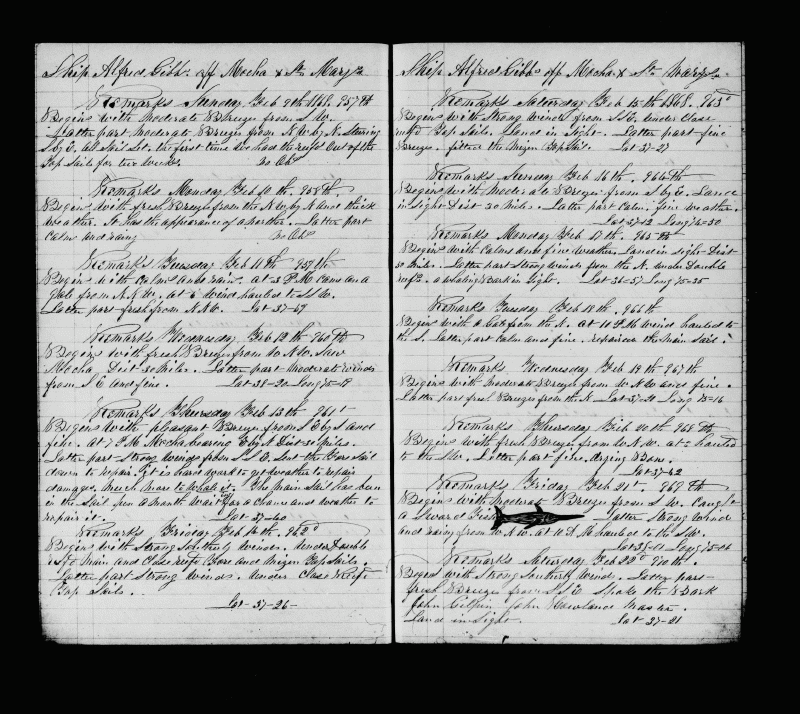 Ship Alfred Gibbs off Mocha & St Marys
Remarks Sunday Feb 9th 1868. 957th
Begins with Moderate Breeze from S W.
Latter part Moderate Breeze from N W by N. Stearing
S by E. all Sail Set. the first time We had the reefs Out of the
Top Sails for two Weeks. No Obs
Remarks Monday Feb 10th. 958th.
Begins with fresh Breeze from the N W by N and thick
weather. It has the appearance of a norther. Latter part
Calm and rainy No Obs
Remarks Tuesday Feb 11th 959th
Begins with Calms and rain. at 3 P M came on a
Gale from N N W. at 5 wind hauled to S S W.
Latter part fresh from N N W. Lat 37-49
Remarks Wednesday Feb 12th 960th
Begins With fresh Breeze from W N W. Saw
Mocha Dist 30 Miles. Latter part Moderate Winds
from S E and fine. Lat 38-20 Long 75-19
Remarks Thursday Feb 13th 961st
Begins With pleasant Breeze from S E by S and
fine. at 7 P M Mocha bearing E by N Dist 20 Miles.
Latter part Strong Winds from S S E. Sent the Fore Sail
down to repair. It is hard work to get weather to repair
damage. Much More to Whale it. The Main Sail has been
in the Sail pen a Month Waiting for a Chance and weather to
repair it. Lat 37-40
Remarks Friday Feb 14th 962d
Begins With Strong Southerly Winds. Under Double
reefd Main and Close reefd Fore and Mizen Top Sails.
Latter part Strong Winds. Under Close Reefd
Top Sails.
Lat 37-26
Ship Alfred Gibbs off Mocha & St Marys
Remarks Saturday Feb 15th 1868. 963d
Begins With Strong Winds from S E. Under Close
reefd Top Sails. Land in Sight. Latter part fine
Breeze. fitted the Mizen Top Sail. Lat 37-27
Remarks Sunday Feb 16th. 964th
Begins with Moderate Breeze from S by E. Land
in Sight Dist 30 Miles. Latter part Calm, fine weather.
Lat 37-12 Long 74-50
Remarks Monday Feb 17th. 965th
Begins with Calms and fine weather. Land in Sight Dist
30 Miles. Latter part Strong Winds from the N. under Double
reefs. a whaling Bark in Sight. Lat 36-57 Long 75-35
Remarks Tuesday Feb 18th. 966th
Begins With a Gale from the N. at 10 P.M wind hauled to
the S. Latter part Calm and fine. repaired the Main Sail.
Remarks Wednesday Feb 19th 967th
Begins with Moderate Breeze from W N W and fine.
Latter part fresh Breeze from the N. Lat 37-30 Long 75-16
Remarks Thursday Feb 20th 968th
Begins With fresh Breeze from W N W. at 2 hauled
to the SW. Latter part fine. drying Bone.
Lat 37-42
Remarks Friday Feb 21st. 969th
Begins With Moderate Breeze from S W. Caught
a Sword Fish Latter Strong Wind
and rainy from W N W. at 10 A M hauled to the SW.
Lat 38-01 Long 75-04
Remarks Saturday Feb 22d 970th.
Begins With Strong Southerly Wind. Latter part
fresh Breeze from S S E. Spoke the Bark
John Gilpin John Rowland Master.
Land in Sight. Lat 37-21